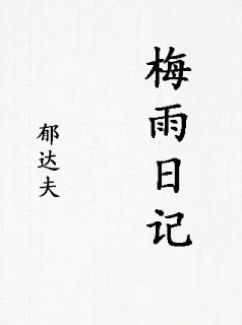 梅雨日记
郁达夫